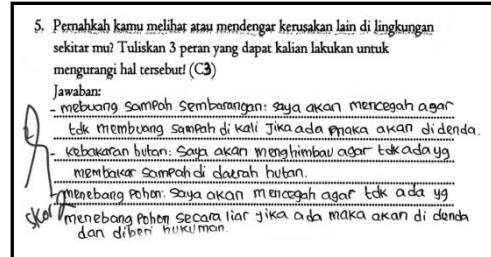 5. Pernahkah kamu melihat atau mendengar kerusakan lain di lingkungan
sekitar mu? Tuliskan 3 peran yang dapat kalian lakukan untuk
mengurangi hal tersebut! (C3)
Jawaban:
- mebuang sampah sembarangan: saya akan mencegah agar
tdk membuang sampah di kali Jika ada maka akan di denda.
- kebakaran hutan: saya akan menghimbau agar tdk ada yg
membakar sampah di daerah hutan.
- menebang pohon: saya akan mencegah agar tdk ada yg
menebang pohon secara liar jika ada maka akan di denda
dan diberi hukuman.
skor